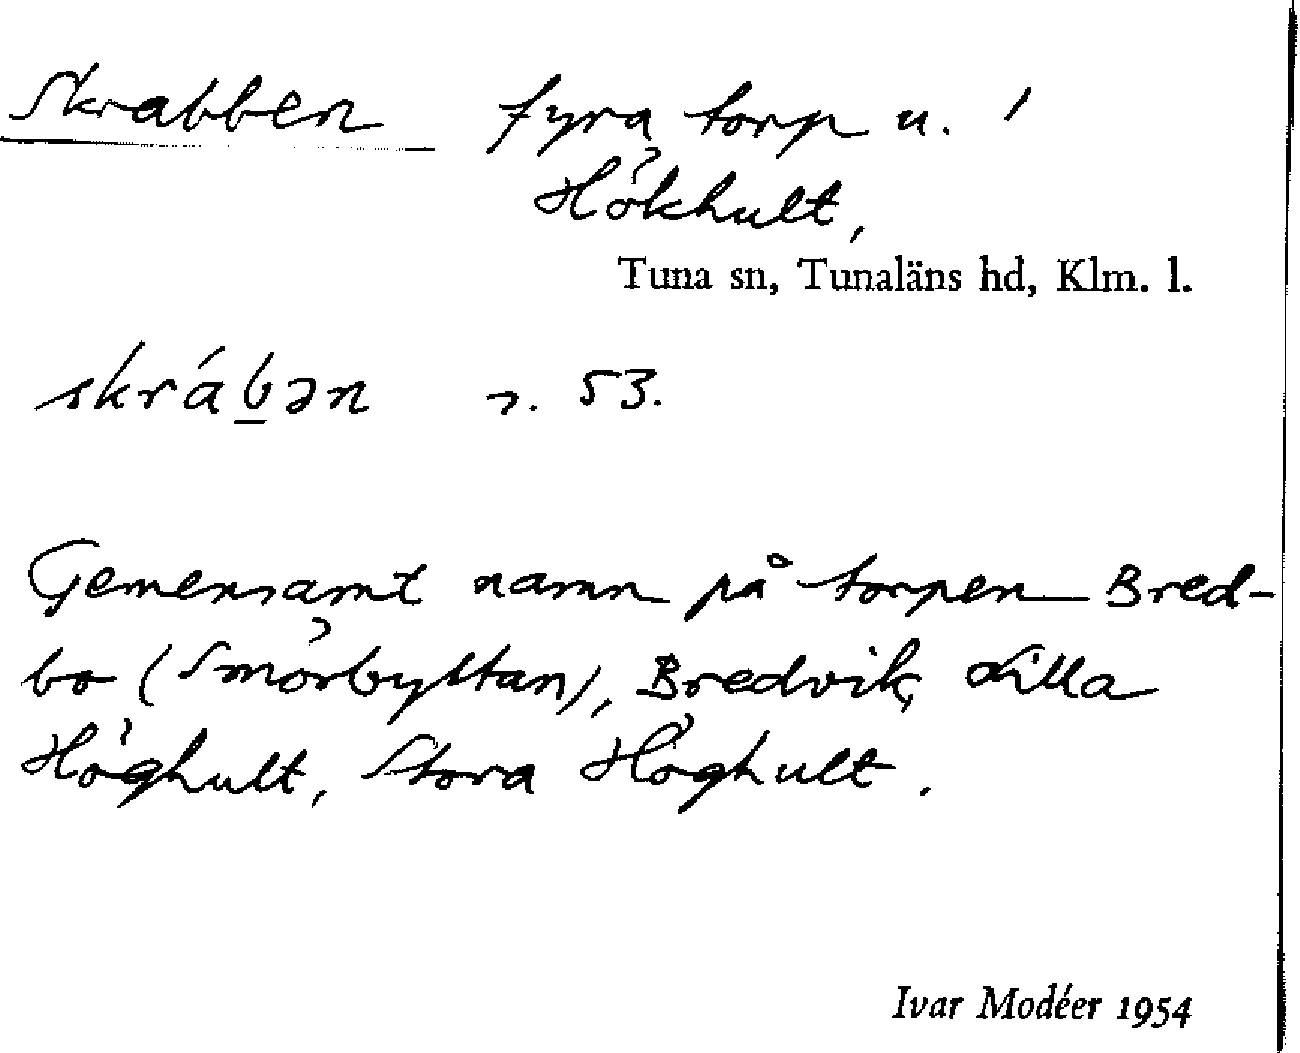 Skrabben fyra torp u. /
Hökhult,
Tuna sn, Tunaläns hd, Klm. l.
skráb̲ən s. 53.
Gemensamt namn på torpen Bred-
bo (Smörbyttan), Bredvik, Lilla
Höghult, Stora Höghult.
Ivar Modéer 1954